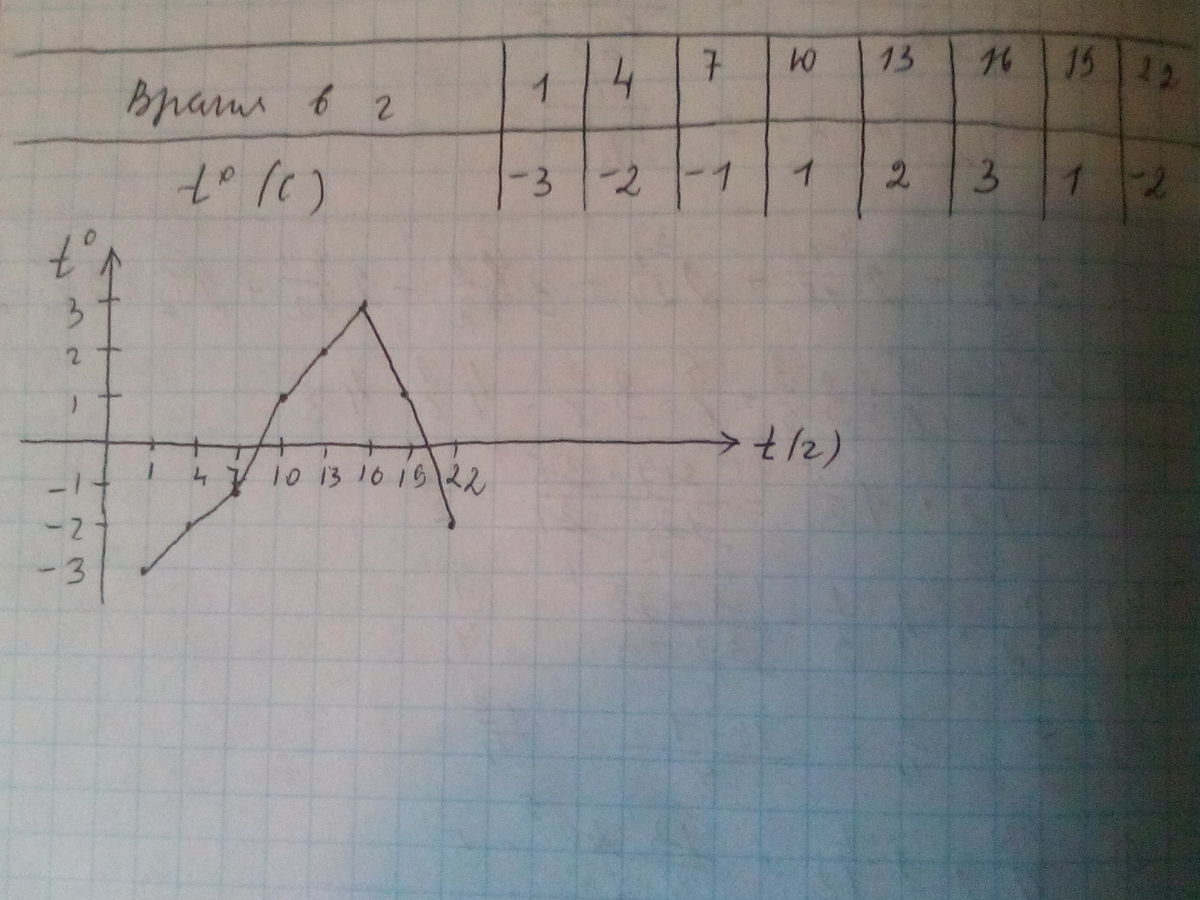 Время в г 1 4 7 10 13 16 19 22
t° (С) -3 -2 -1 1 2 3 1 -2
t°
3
2
1
t(г)
1 4 7 10 13 16 19 22
-1
-2
-3